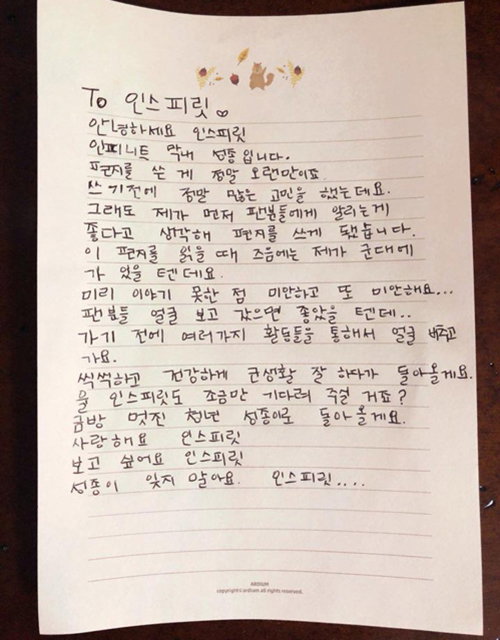 To 인스피릿♡
안녕하세요 인스피릿
인피니트 막내 성종입니다.
편지를 쓴 게 정말 오랜만이죠
쓰기전에 정말 많은 고민을 했는데요.
그래도 제가 먼저 팬분들에게 알리는게
좋다고 생각해 편지를 쓰게 됐습니다.
이 편지를 읽을 때 즈음에는 제가 군대에
가 있을 텐데요.
미리 이야기 못한 점 미안하고 또 미안해요...
팬분들 얼굴 보고 갔으면 좋았을 텐데..
가기 전에 여러가지 활동들을 통해서 얼굴 비추고
가요.
씩씩하고 건강하게 군생활 잘 하다가 돌아올게요.
울 인스피릿도 조금만 기다려 주실 거죠?
금방 멋진 청년 성종이로 돌아올게요.
사랑해요 인스피릿
보고 싶어요 인스피릿
성종이 잊지 말아요. 인스피릿....
ARDIUM
copyright©ardium all rights reserved.